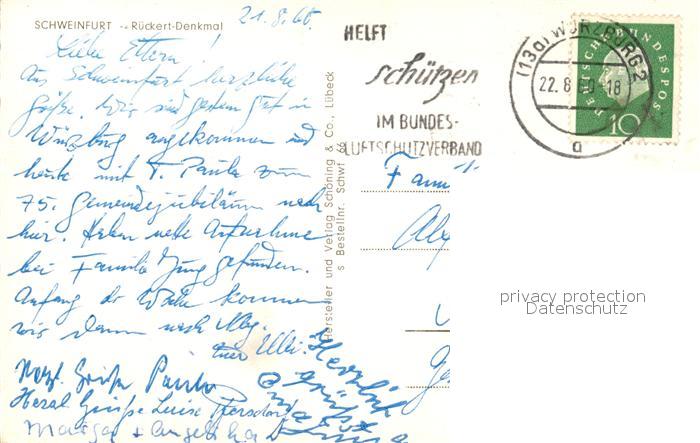 SCHWEINFURT Rückert-Denkmal
21.8.60.
Liebe Eltern!
Aus Schweinfurt herzliche
Grüße. Wir sind gestern gut in
Würzburg angekommen und
heute mit T. Paula zum
75. Gemeindejubiläum nach
hier. Haben nette Aufnahme
bei Familie Jung gefunden.
Anfang der Woche kommen
wir dann nach
Euer Ulli.
Herzl. Grüße Paula
Herzl Grüße Luise
Margot + Angelika
Herzlich
grüßt
Hersteller und Verlag Schöning & Co., Lübeck
s Bestellnr. Schwf 66
HELFT
schützen
IM BUNDES-
LUFTSCHUTZVERBAND
(13a) WÜRZBURG 2
22.8.60-18
a
DEUTSCHE BUNDESPOST
10
Fam
privacy protection
Datenschutz